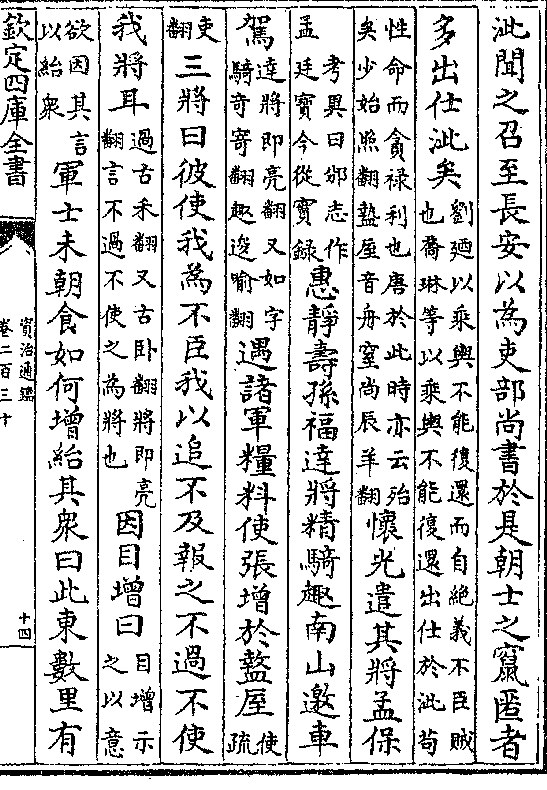 泚聞之召至長安以為吏部尚書於是朝士之竄匿者
多出仕泚矣劉廼以乘輿不能復還而自絶義不臣賊也喬琳等以乘輿不能復還出仕於泚茍
性命而貪禄利也唐於此時亦云殆矣少始照翻盩厔音舟窒尚辰羊翻懷光遣其將孟保
考異曰邠志作孟廷寳今從實録惠靜壽孫福達將精騎趣南山邀車
駕達將即亮翻又如字騎奇寄翻趣逡喻翻遇諸軍糧料使張增於盩厔使疏
吏翻三將曰彼使我為不臣我以追不及報之不過不使
我將耳過古禾翻又古卧翻將即亮翻言不過不使之為將也因目增曰目增示之以意
欲因其言以紿衆軍士未朝食如何增紿其衆曰此東數里有
欽定四庫全書
資治通鑑
卷二百三十
十四